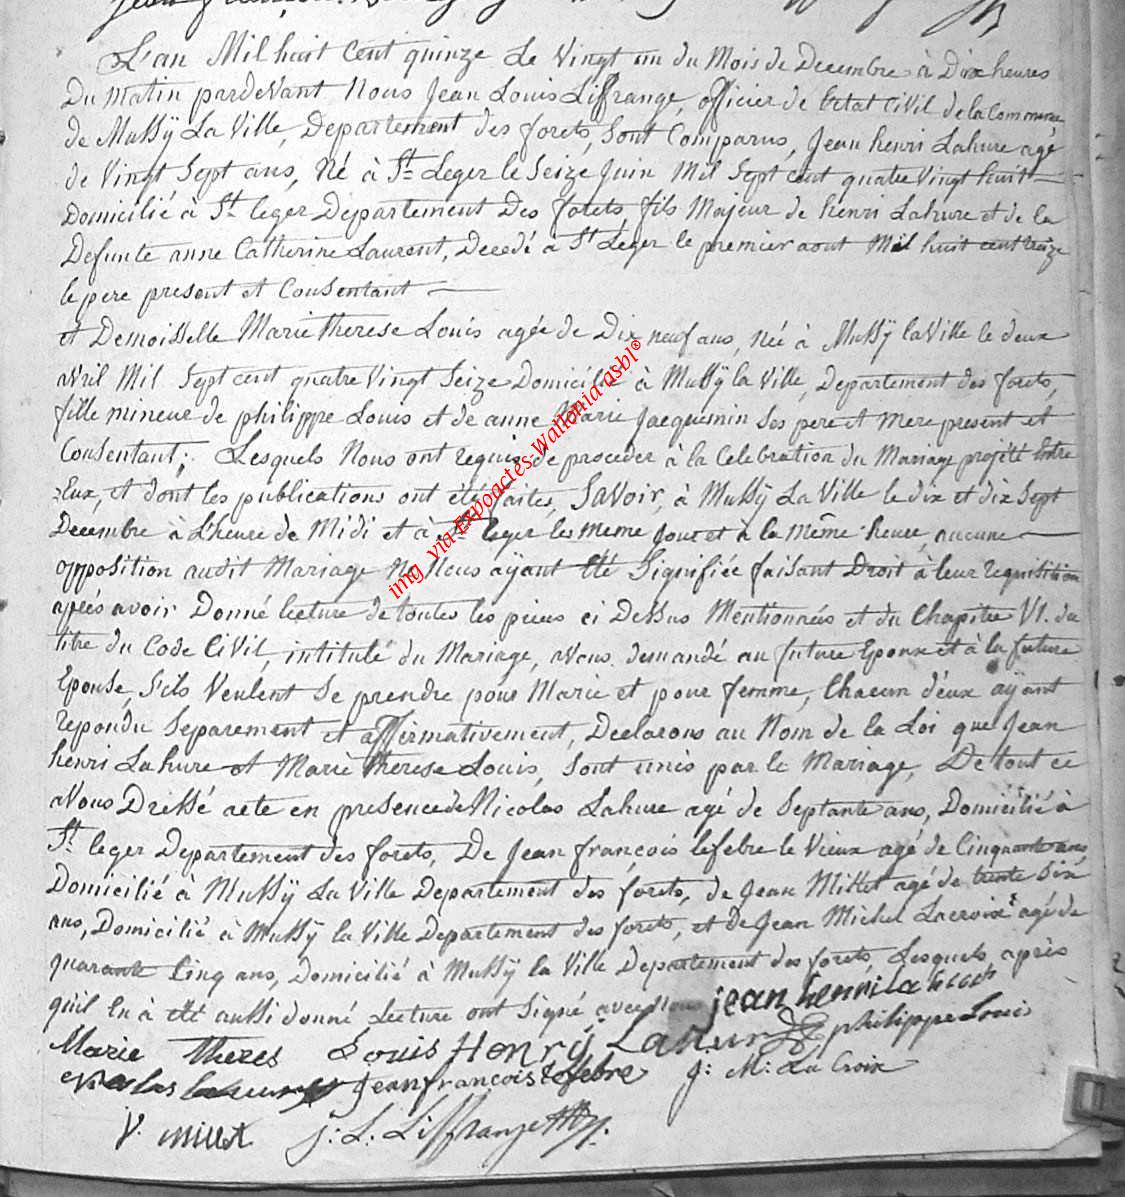 L'an Mil huit Cent quinze Le Vingt un du Mois de Decembre à Dix heures
Du Matin pardeVant Nous Jean Louis Liffrange, officier de Letat CiVil de la Commune
de Mussÿ La Ville, Departement des forets, Sont Comparus, Jean henri Lahure agé
de Vingt Sept ans, Né à St Leger le Seize Juin Mil Sept cent quatre Vingt huit
Domicilié à St leger Departement Des forets, fils Majeur de henri Lahure et de la
Defunte anne Catherine Laurent, Decedé a St Leger le premier aout Mil huit cent treize
le pere present et Consentant
et Demoiselle Marie therese Louis agée de Dix neuf ans, Né à Mussÿ la Ville le deux
aVril Mil Sept cent quatre Vingt Seize Domicilié à Mussÿ la Ville, Departement des forets,
fille mineur de philippe Louis et de anne Marie Jacquemin Ses pere et Mere present et
Consentant; Lesquels Nous ont requis de proceder à la Celebration du Mariage projetté entre
Eux, et dont les publications ont été faites, SaVoir, à Mussÿ La Ville le dix et dix Sept
Decembre à L'heure de Midi et à St leger les meme Jour et a la Même heure, aucune
opposition audit Mariage Ne Nous aÿant été Signifiée faisant Droit à leur requisition
après avoir Donné lecture de toutes les pieces ci Dessus Mentionnés et du Chapitre VI. du
titre du Code CiVil, intitulé du Mariage, aVons demandé au future Epoux et à la future
Epouse, S'ils Veulent Se prendre pour Marie et pour femme, Chacun d'eux aÿant
repondu Separement et affirmativement, Declarons au Nom de la Loi que Jean
henri Lahure et Marie therese Louis, Sont unis par le Mariage, De tout ce
aVons Dressé acte en presence de Nicolas Lahure agé de Septante ans, Domicilié à
St leger Departement des forets, De Jean françois lefebre le Vieux agé de Cinquante ans
Domicilié à Mussÿ La Ville Departement des forets, de Jean Millet agé de trente Six
ans, Domicilié à Mussÿ la Ville Departement des forets, et de Jean Michel Lacroix agé de
quarante Cinq ans, Domicilié à Mussÿ la Ville Departement des forets, Lesquels, après
quil lu à été aussi donné Lecture ont Signé avec Nous jean henri la
Marie Theres Louis Henrÿ Lahur philippe Louis
Jean francois lefebre J: M: La Croix
J. millet J. L. Liffrange
img_via Expoactes-Wallonia asbl©